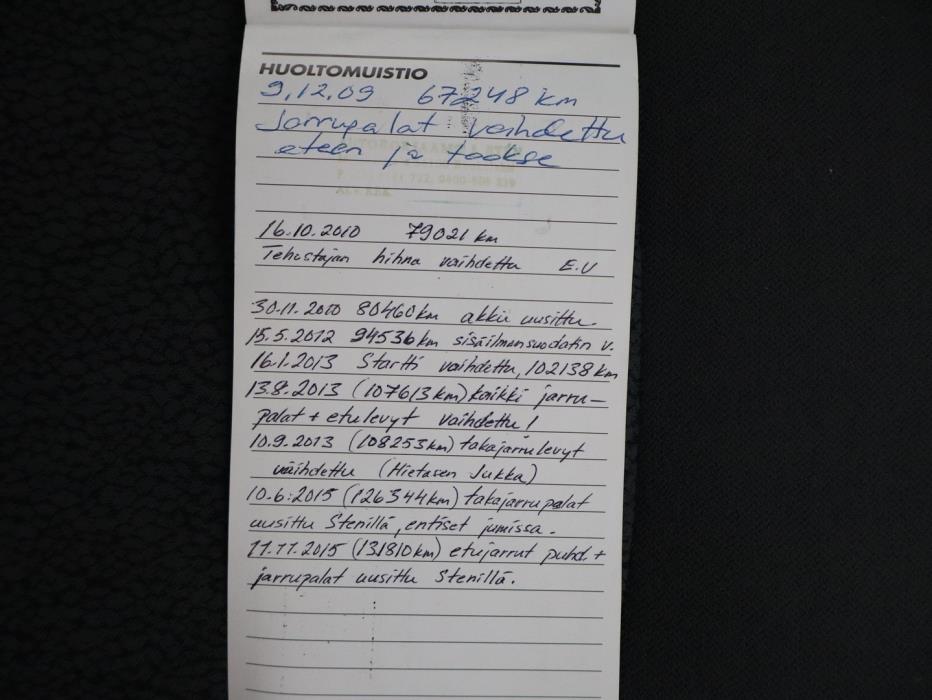 HUOLTOMUISTIO
9.12.09 67248 km
Jarrupalat vaihdettu
eteen ja taakse
16.10.2010 79021 km
Tehostajan hihna vaihdettu E.U
30.11.2010 80460km akku uusittu.
15.5.2012 94536km sisäilmansuodatin v.
16.1.2013 Startti vaihdettu, 102138 km
13.8.2013 (107613km) kaikki jarru-
palat + etulevyt vaihdettu!
10.9.2013 (108253km) takajarrulevyt
vaihdettu (Hietasen Jukka)
10.6.2015 (126344km) takajarrupalat
uusittu Stenillä, entiset jumissa.
11.11.2015 (131810km) etujarrut puhd. +
jarrupalat uusittu Stenillä.